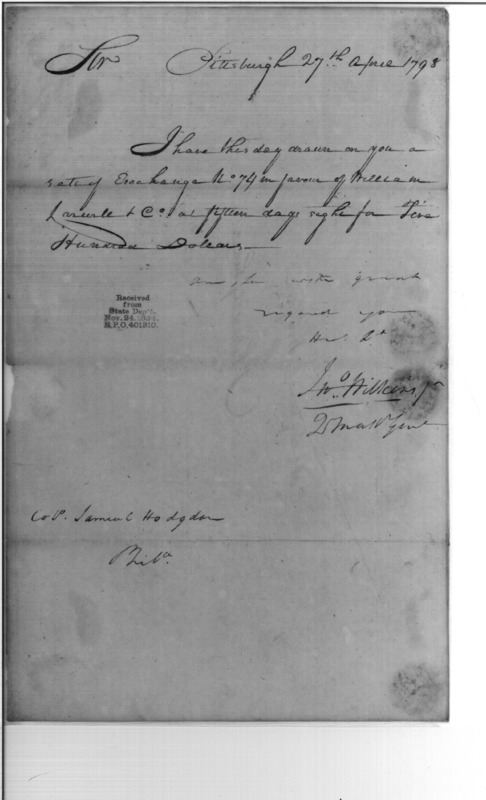 Sir Pittsburgh 27th April 1798
I have this day drawn on you a
sett of Exchange No 74 in favour of William
& Co. at fifteen days sight for Five
Hundred Dollars—
am, Sir with great
regard your
Hv. St
Jno. Wilkins Jr
Qr Mastr Genl
Received
from
State Dep't.
Nov. 24, 1894.
R.P.O. 401310.
Col. Samuel Hodgdon
Phila.